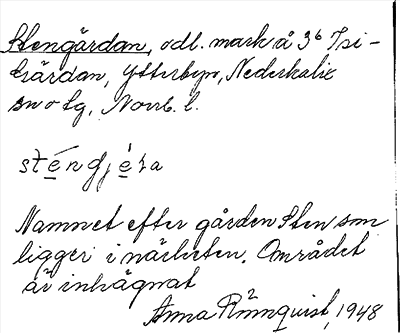 Stengärdan, odl. mark å 3⁶ Isi-
gärdan, Ytterbyn, Nederkalix
sn o tg, Norrb. l.
sténdjéra
Namnet efter gården Sten som
ligger i närheten. Området
är inhägnat
Anna Rönnquist, 1948